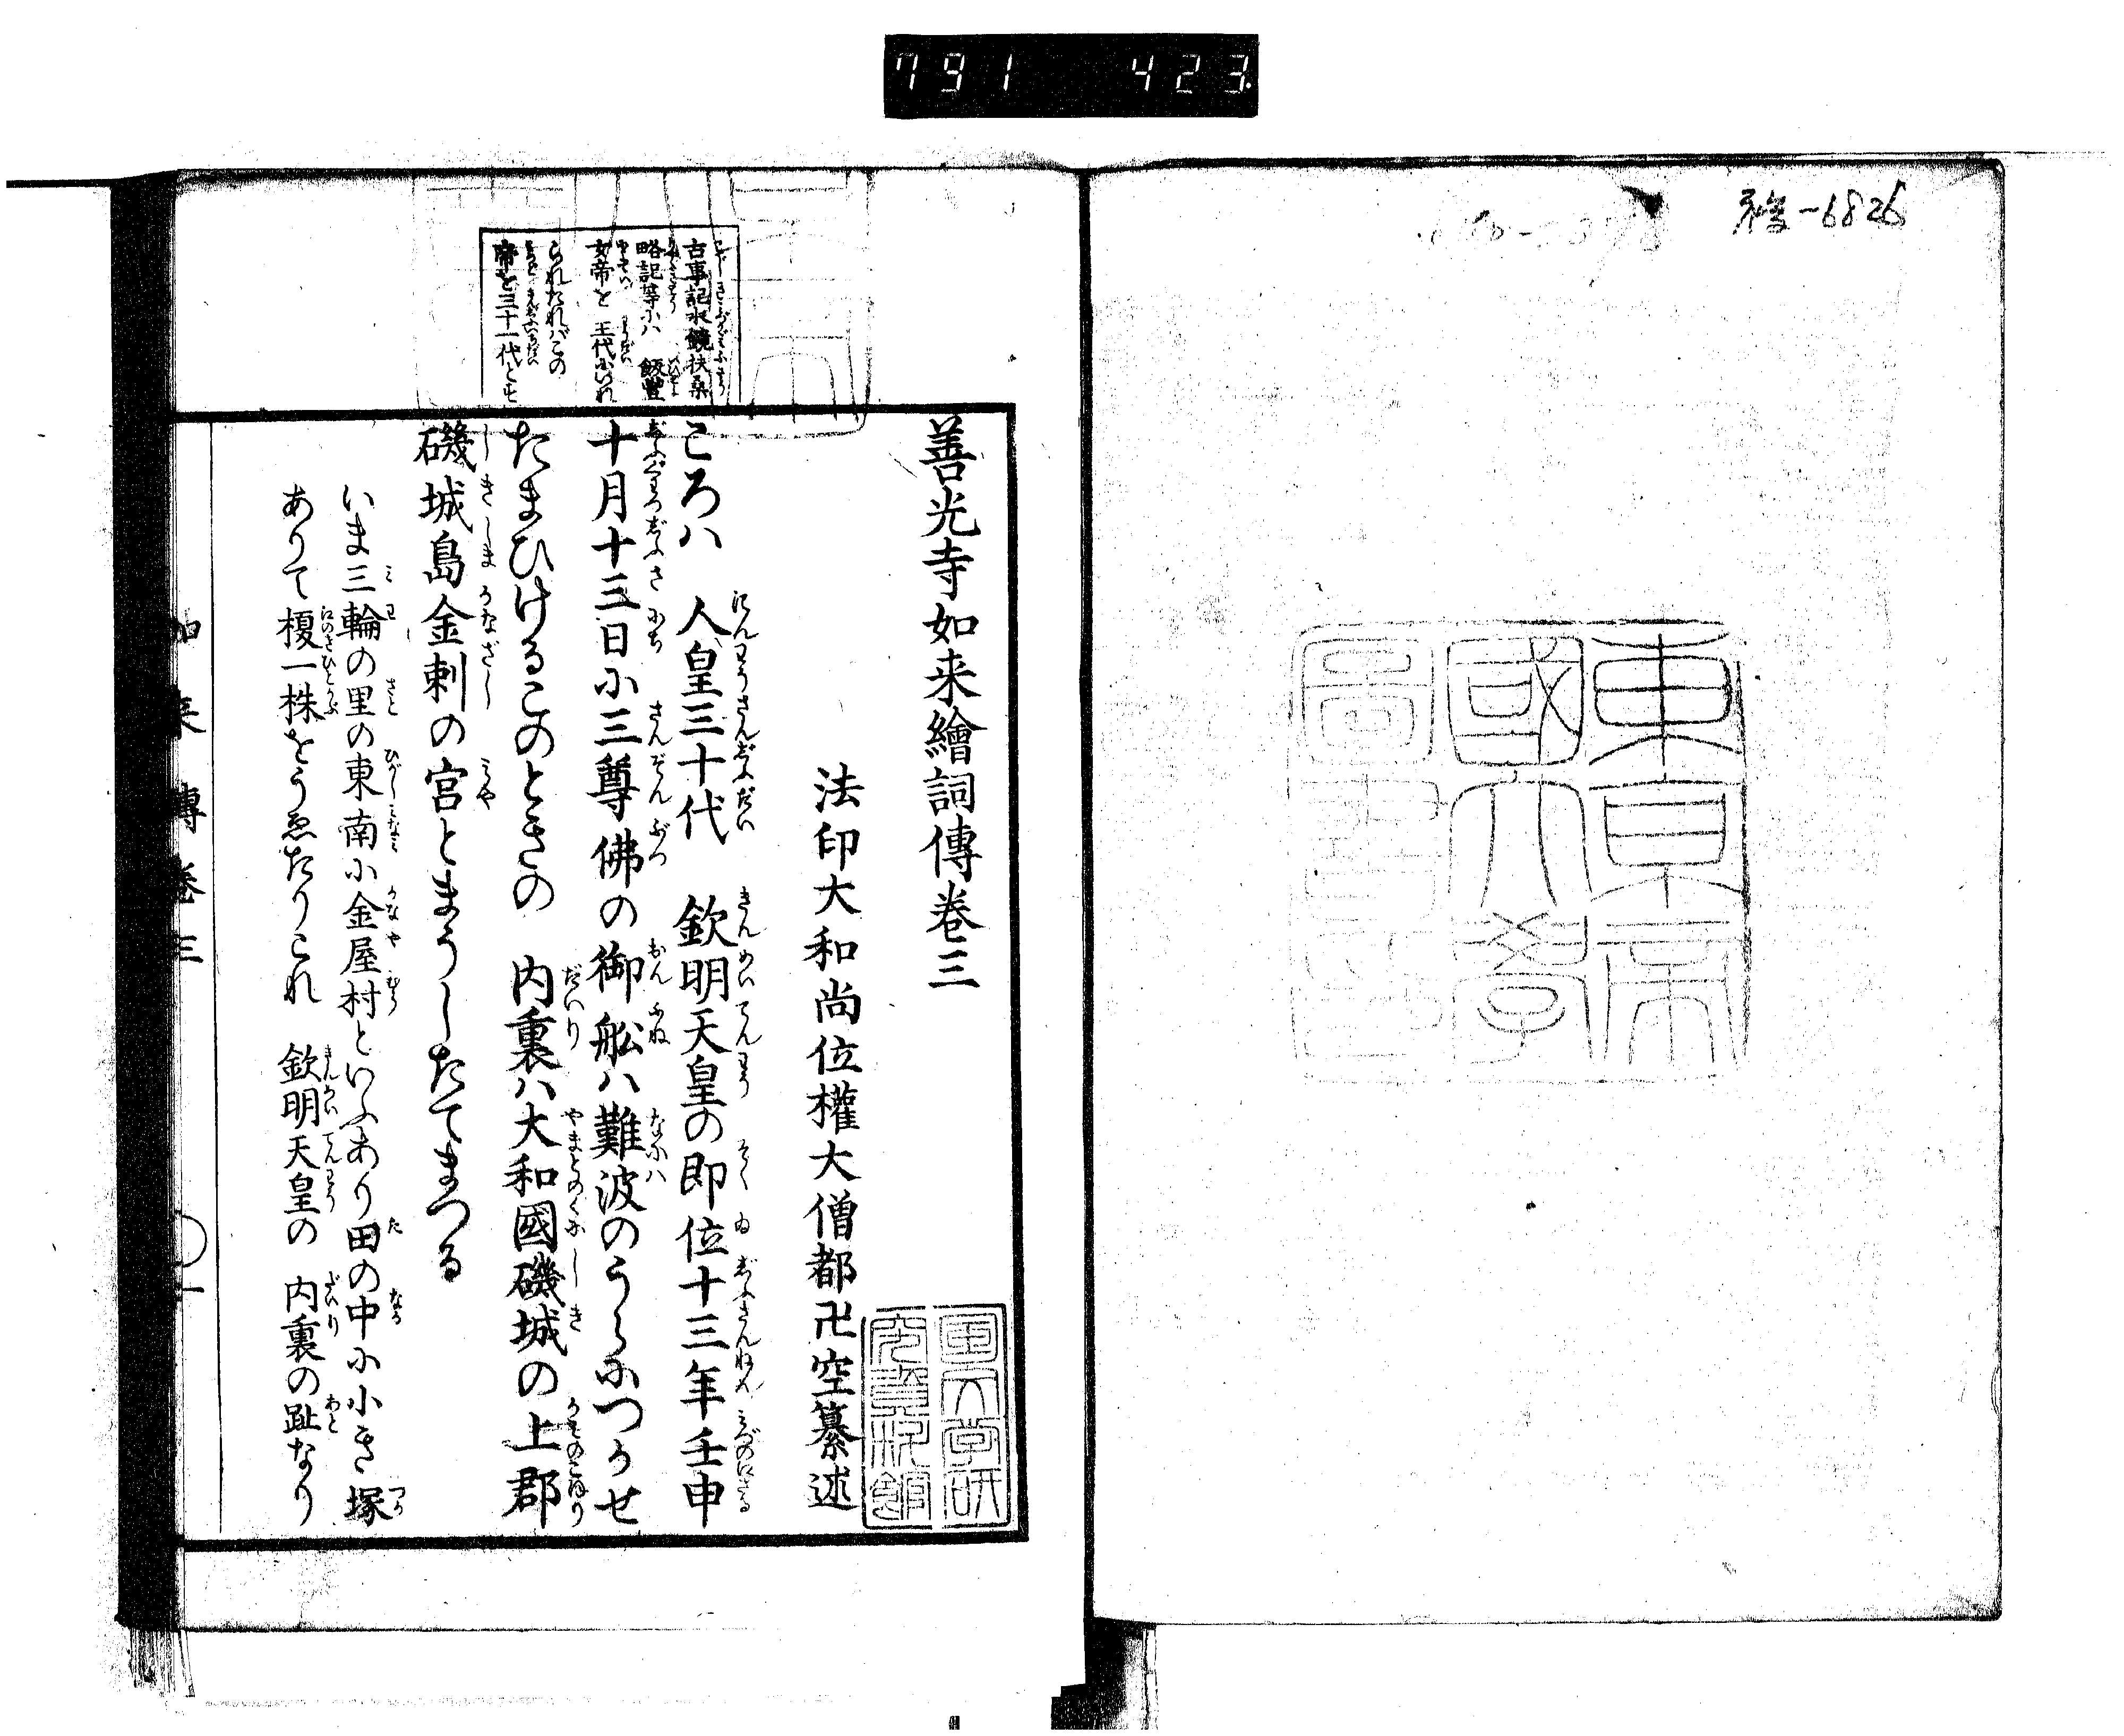 791 423
善光寺如来繪詞傳卷三
法印大和尚位權大僧都卍空纂述
ころハ 人皇三十代 欽明天皇の即位十三年壬申
十月十三日に三尊佛の御舩ハ難波のうらにつかせ
たまひけるこのときの 内裏ハ大和國磯城の上郡
磯城島金刺の宮とまうしたてまつる
いま三輪の里の東南に金屋村といふあり田の中に小き塚
ありて榎一株をうゑたりこれ 欽明天皇の 内裏の趾なり
古事記水鏡扶桑
略記等にハ 飯豐
女帝を 王代にいれ
られたれバこの
帝を三十一代とす
東京帝
國大學
圖書印
如来傳卷三
一